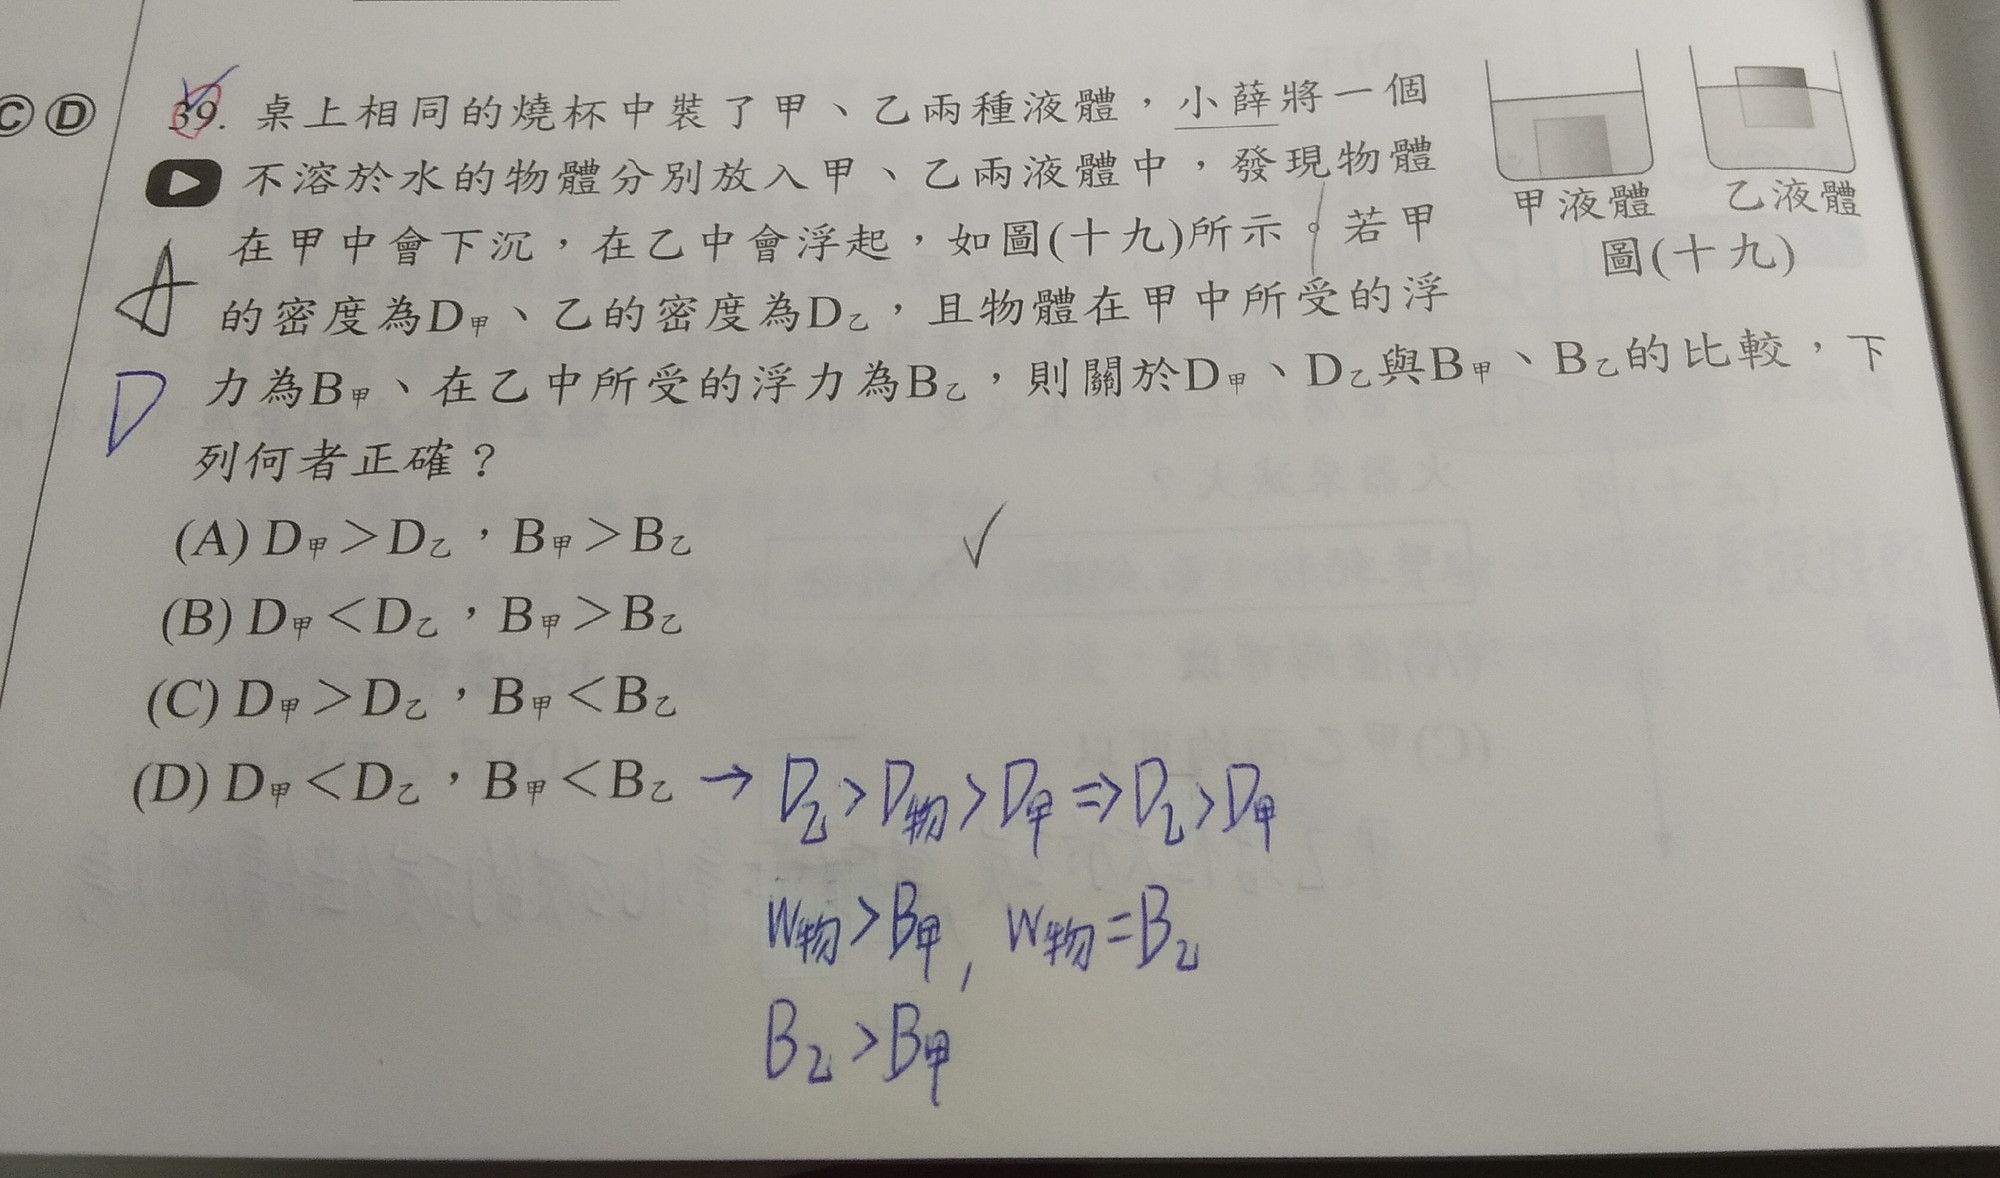 C D
39. 桌上相同的燒杯中裝了甲、乙兩種液體，小薛將一個
不溶於水的物體分別放入甲、乙兩液體中，發現物體
在甲中會下沉，在乙中會浮起，如圖(十九)所示。若甲
的密度為D甲、乙的密度為D乙，且物體在甲中所受的浮
力為B甲、在乙中所受的浮力為B乙，則關於D甲、D乙與B甲、B乙的比較，下
列何者正確？
A
D
甲液體
乙液體
圖(十九)
(A) D甲＞D乙，B甲＞B乙
(B) D甲＜D乙，B甲＞B乙
(C) D甲＞D乙，B甲＜B乙
(D) D甲＜D乙，B甲＜B乙 → D乙>D物>D甲⇒D乙>D甲
W物>B甲, W物=B乙
B乙>B甲